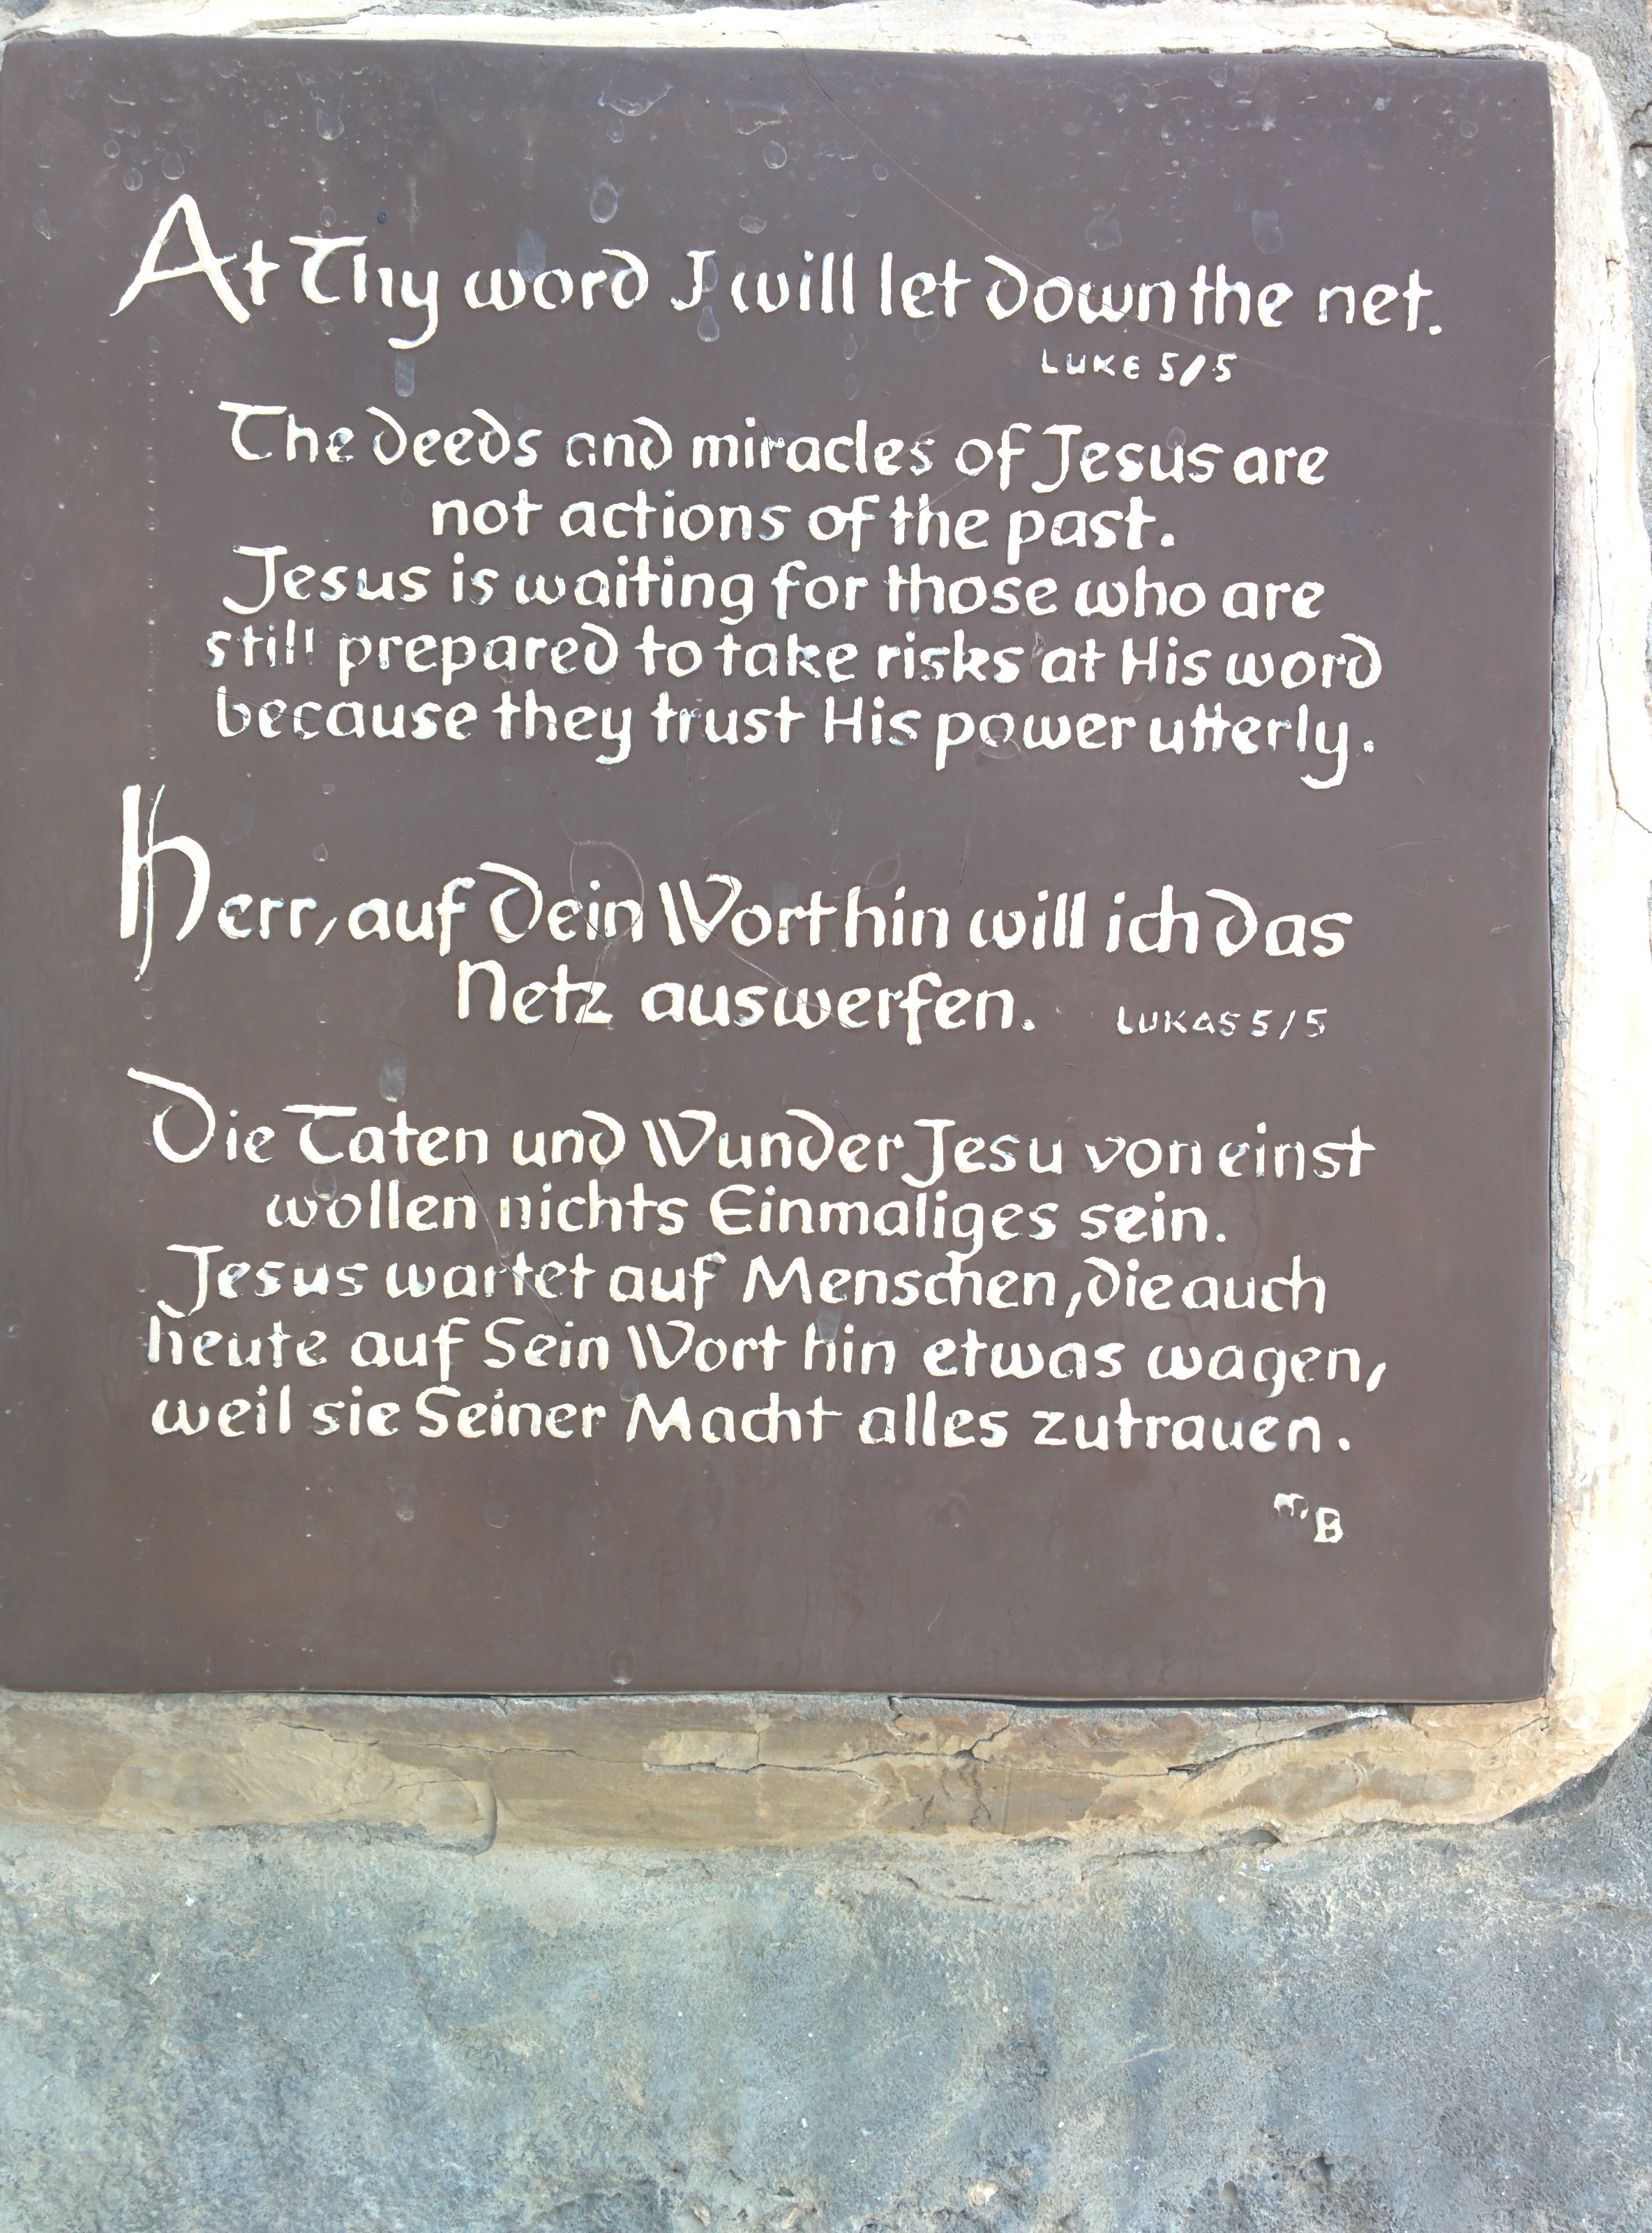 At Thy word I will let down the net.
LUKE 5/5
The deeds and miracles of Jesus are
not actions of the past.
Jesus is waiting for those who are
still prepared to take risks at His word
because they trust His power utterly.
Herr, auf Dein Wort hin will ich das
Netz auswerfen. LUKAS 5/5
Die Taten und Wunder Jesu von einst
wollen nichts Einmaliges sein.
Jesus wartet auf Menschen, die auch
heute auf Sein Wort hin etwas wagen,
weil sie Seiner Macht alles zutrauen.
M.B